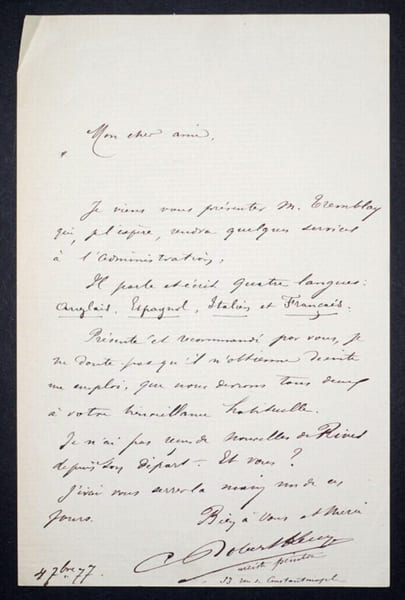 Mon cher ami,
Je viens vous présenter M. Tremblay
qui, je l'espère, rendra quelques services
à l'administration.
Il parle et écrit quatre langues:
Anglais, Espagnol, Italien et Français.
Présenté et recommandé par vous, je
ne doute pas qu'il n'obtienne de suite
un emploi, que nous devrons tous deux
à votre bienveillance habituelle.
Je n'ai pas reçu de nouvelles de
depuis son départ. Et vous?
J'irai vous serrer la main un de ces
jours. Bien à vous et merci
Robert
artiste peintre
4 7bre 77. 53 rue de Constantinople